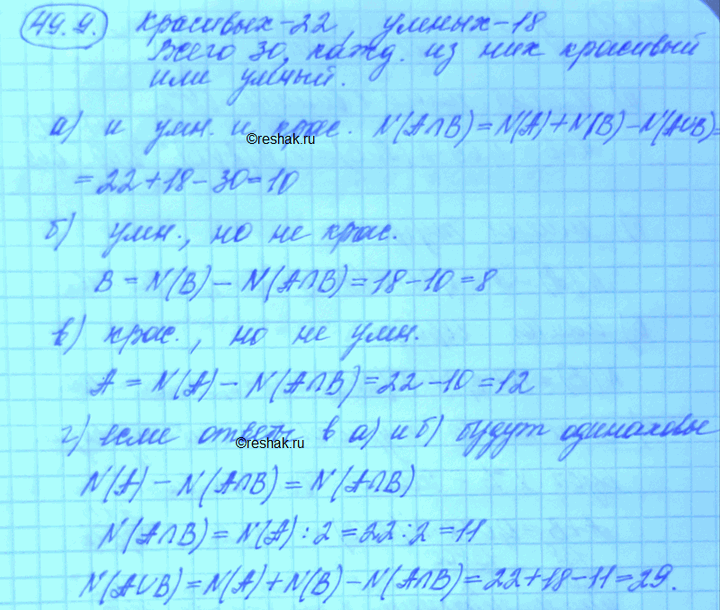 49.9. красивых-22, умных-18
Всего 30, кажд. из них красивый
или умный.
а) и умн. и крас. N(A∩B)=N(A)+N(B)-N(A∪B)=
©reshak.ru
=22+18-30=10
б) умн., но не крас.
B=N(B)-N(A∩B)=18-10=8
в) крас., но не умн.
A=N(A)-N(A∩B)=22-10=12
г) если ответы в а) и б) будут одинаковы
©reshak.ru
N(A)-N(A∩B)=N(A∩B)
N(A∩B)=N(A):2=22:2=11
N(A∪B)=N(A)+N(B)-N(A∩B)=22+18-11=29.